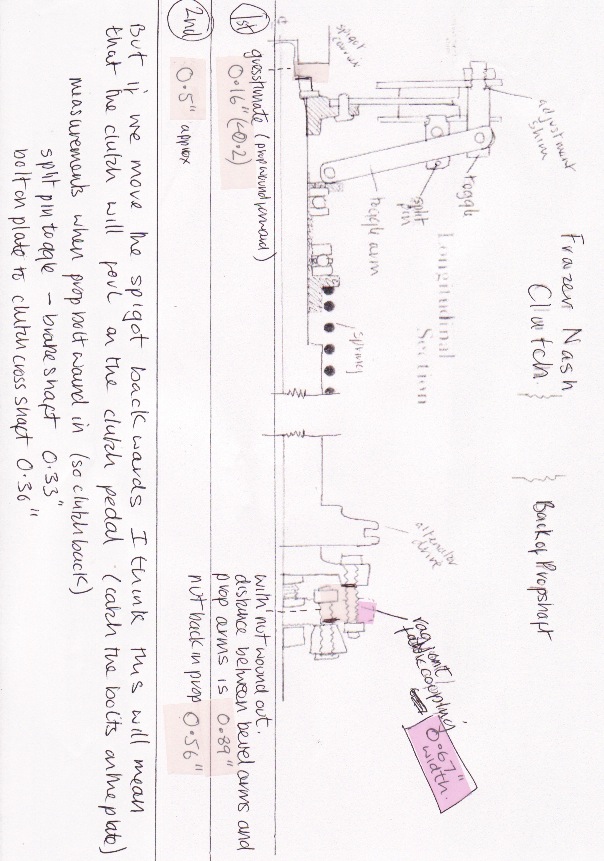 Frazer Nash
Clutch
Back of Propshaft
adjustment
shim
toggle
split
pin
toggle arm
spigot
Longitudinal
Section
spring
alternator
drive
rag joint/
coupling
0.67"
width.
1st
guesstimate (prop wound forward)
0.16" (-0.2)
with nut wound out.
distance between bevel arms and
prop arms is 0.89"
2nd
0.5" approx
nut back in prop 0.56"
But if we move the spigot backwards I think this will mean
that the clutch will foul on the clutch pedal. (catch the bolts on the plate)
measurements when prop bolt wound in (so clutch back)
split pin toggle - brake shaft 0.33"
bolt on plate to clutch cross shaft 0.36"